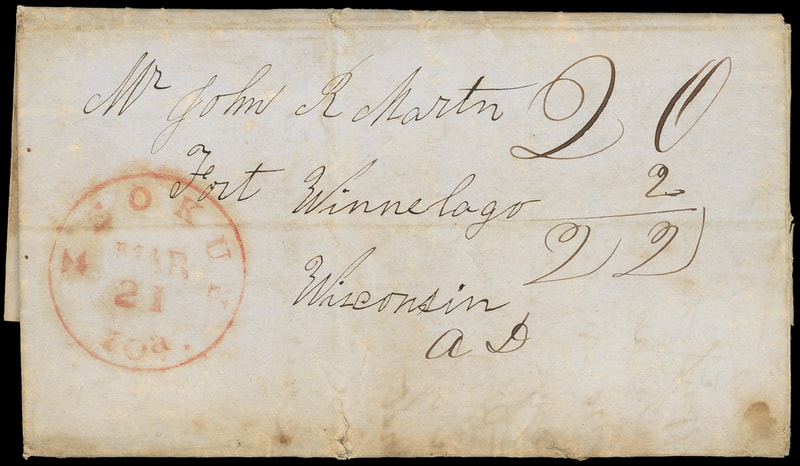 Mr John R Martn 20
Fort Winnelago 2
22
Wisconsin
A D
KEOKUK
MAR
21
Ioa.